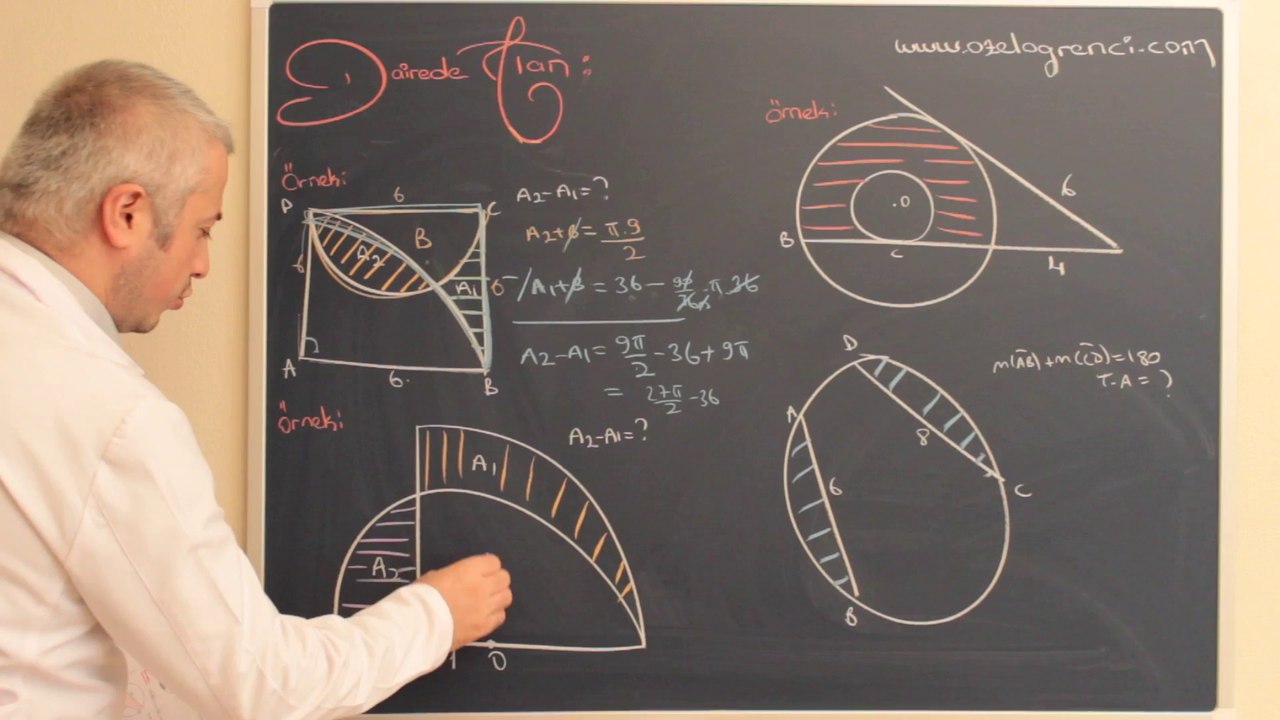 Dairede Alan:
www.ozelogrenci.com
Örnek:
6
D
C
B
A2
A1
6
6
A
6.
B
A2-A1=?
A2+B=π.9/2
-/A1+B=36-90/360.π.36
A2-A1=9π/2-36+9π
=27π/2-36
Örnek:
A2-A1=?
A1
A2
1
O
Örnek:
.O
6
B
C
4
m(AB)+m(CD)=180
T.A=?
D
A
8
6
C
B